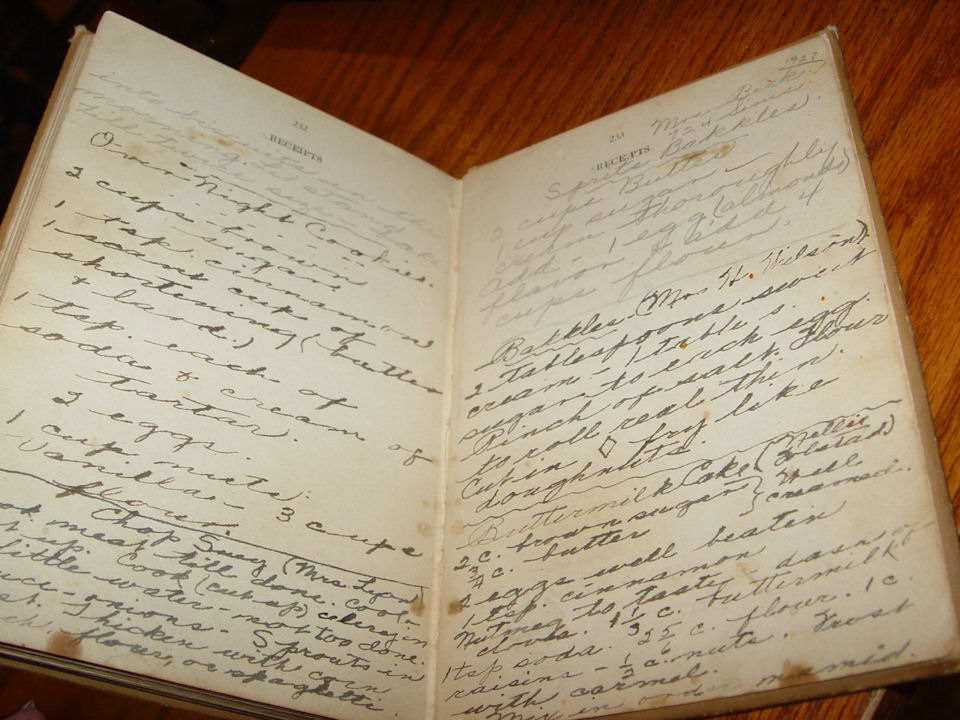 232
RECEIPTS
into biscuits in the
morning. Let stand
Over Night Cookies.
2 cups brown
sugar.
1 tsk. cinnamon
1 scant cup of
shortening (butter
& lard.)
1 tsp. each of
soda & cream of
tartar.
2 eggs.
1 cup nuts.
Vanilla. 3 cups
flour.
Chop Suey (Mrs. Lyon)
meat till done. Cool -
Cook (cut up) celery in
little water - not too done.
onions. Sprouts in
Thicken with corn
flour, or spaghetti.
1927
Mrs. Beck.
233
RECEIPTS
Sprits Bakkles.
2 cups Butter
1 cup sugar
cream thoroughly
add - 1 egg (almonds)
flavor & add 4
cups flour.
Bakkles (Mrs H. Wilson)
2 tablespoons sweet
cream - 1 table s.
sugar to each egg.
Pinch of salt. Flour
to roll real thin.
Cut in ◊ fry like
doughnuts.
Buttermilk Cake (Nellie
2 c. brown sugar } Well
3/4 c. butter } creamed.
2 eggs well beaten
1 tsp. cinnamon
Nutmeg to taste dash of
clove. 1 1/2 c. buttermilk
1 tsp soda. 3 c. flour. 1 c.
raisins - 1/2 c. nuts. Frost
with carmel.
Mix in order named.